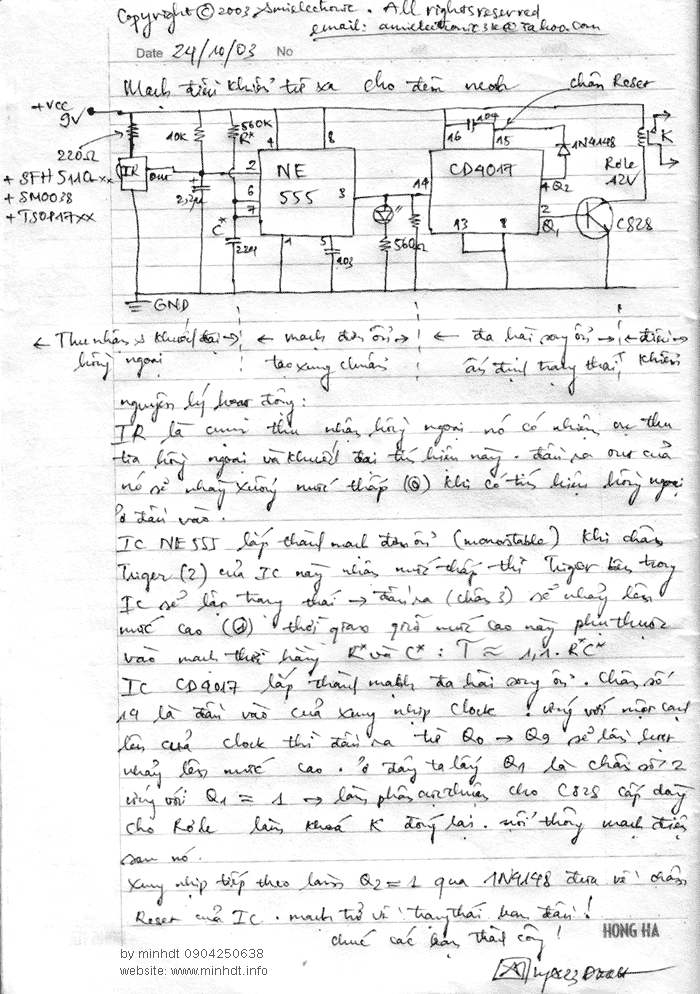 Copyright © 2003 Amielectronic. All rights reserved
email: amielectronic3k@Yahoo.com
Date 24/10/03 No
Mạch điều khiển từ xa cho đèn neon
chân Reset
+Vcc
9V
220Ω
10K
560K
R*
4
8
16
104
15
1N4148
K
Rơle
12V
IR
out
+ SFH 5110-xx
+ SM0038
+ TSOP17xx
2,2µ
2
6
7
NE
555
3
14
CD4017
4 Q2
2
Q1
C828
C*
22µ
1
5
103
560Ω
13
8
GND
← Thu nhận & khuếch đại → ← mạch đơn ổn → ← đa hài song ổn → ← điều
hồng ngoại tạo xung chuẩn ấn định trạng thái khiển
nguyên lý hoạt động:
IR là thu nhận hồng ngoại nó có nhiệm vụ thu
tia hồng ngoại và khuếch đại tín hiệu này. đầu ra out của
nó sẽ nhảy xuống mức thấp (0) khi có tín hiệu hồng ngoại
ở đầu vào.
IC NE555 lắp thành mạch đơn ổn (monostable) khi chân
Triger (2) của IC này nhận mức thấp thì Triger bên trong
IC sẽ lập trạng thái → đầu ra (chân 3) sẽ nhảy lên
mức cao (1) thời gian giữ mức cao này phụ thuộc
vào mạch thời hằng R* và C* : T ≈ 1,1.R*C*
IC CD4017 lắp thành mạch đa hài song ổn. Chân số
14 là đầu vào của xung nhịp Clock. ứng với mỗi cạnh
lên của clock thì đầu ra từ Q0 → Q9 sẽ lần lượt
nhảy lên mức cao. ở đây ta lấy Q1 là chân số 2
ứng với Q1 = 1 → làm phân cực thuận cho C828 cấp dòng
cho Rơle làm khoá K đóng lại. nối thông mạch điện
sau nó.
Xung nhịp tiếp theo làm Q2 = 1 qua 1N4148 đưa về chân
Reset của IC. mạch trở về trạng thái ban đầu!
chúc các bạn thành công!
HONG HA
by minhdt 0904250638
website: www.minhdt.info